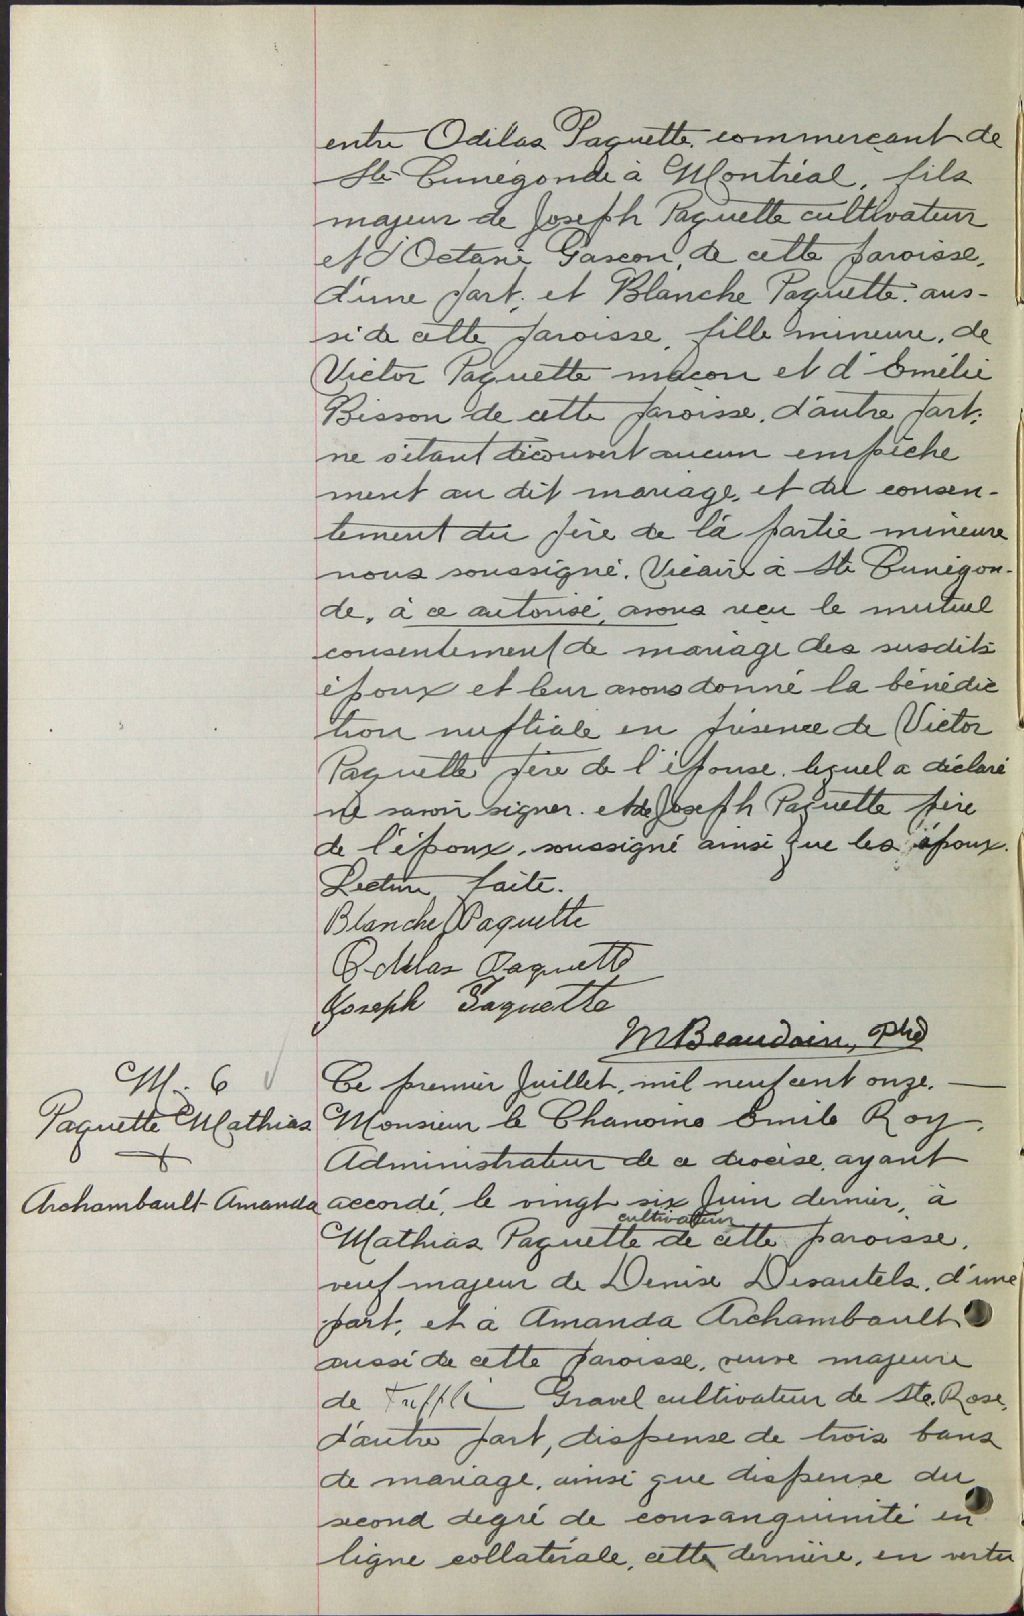 entre Odilas Paquette, commerçant de
Ste Cunégonde à Montréal, fils
majeur de Joseph Paquette cultivateur
et d'Octavie Gascon, de cette paroisse,
d'une part, et Blanche Paquette, aus-
si de cette paroisse, fille mineure, de
Victor Paquette maçon et d'Emélie
Bisson de cette paroisse, d'autre part;
ne s'étant découvert aucun empêche
ment au dit mariage, et du consen-
tement du père de la partie mineure
nous soussigné, Vicaire à Ste Cunégon-
de, à ce autorisé, avons reçu le mutuel
consentement de mariage des susdits
époux et leur avons donné la bénédic
tion nuptiale en présence de Victor
Paquette père de l'épouse, lequel a déclaré
ne savoir signer, et de Joseph Paquette père
de l'époux, soussigné ainsi que les époux.
Lecture faite.
Blanche Paquette
Odilas Paquette
Joseph Paquette
M Beaudoin, Ptre
M. 6
Paquette Mathias
+
Archambault Amanda
Ce premier Juillet, mil neuf cent onze. —
Monsieur le Chanoine Emile Roy,
Administrateur de ce diocèse, ayant
accordé, le vingt six Juin dernier, à
cultivateur
Mathias Paquette de cette paroisse,
veuf majeur de Denise Desautels, d'une
part, et à Amanda Archambault
aussi de cette paroisse, veuve majeure
de Trefflé Gravel cultivateur de Ste. Rose,
d'autre part, dispense de trois bans
de mariage, ainsi que dispense du
second degré de consanguinité en
ligne collatérale, cette dernière, en vertu